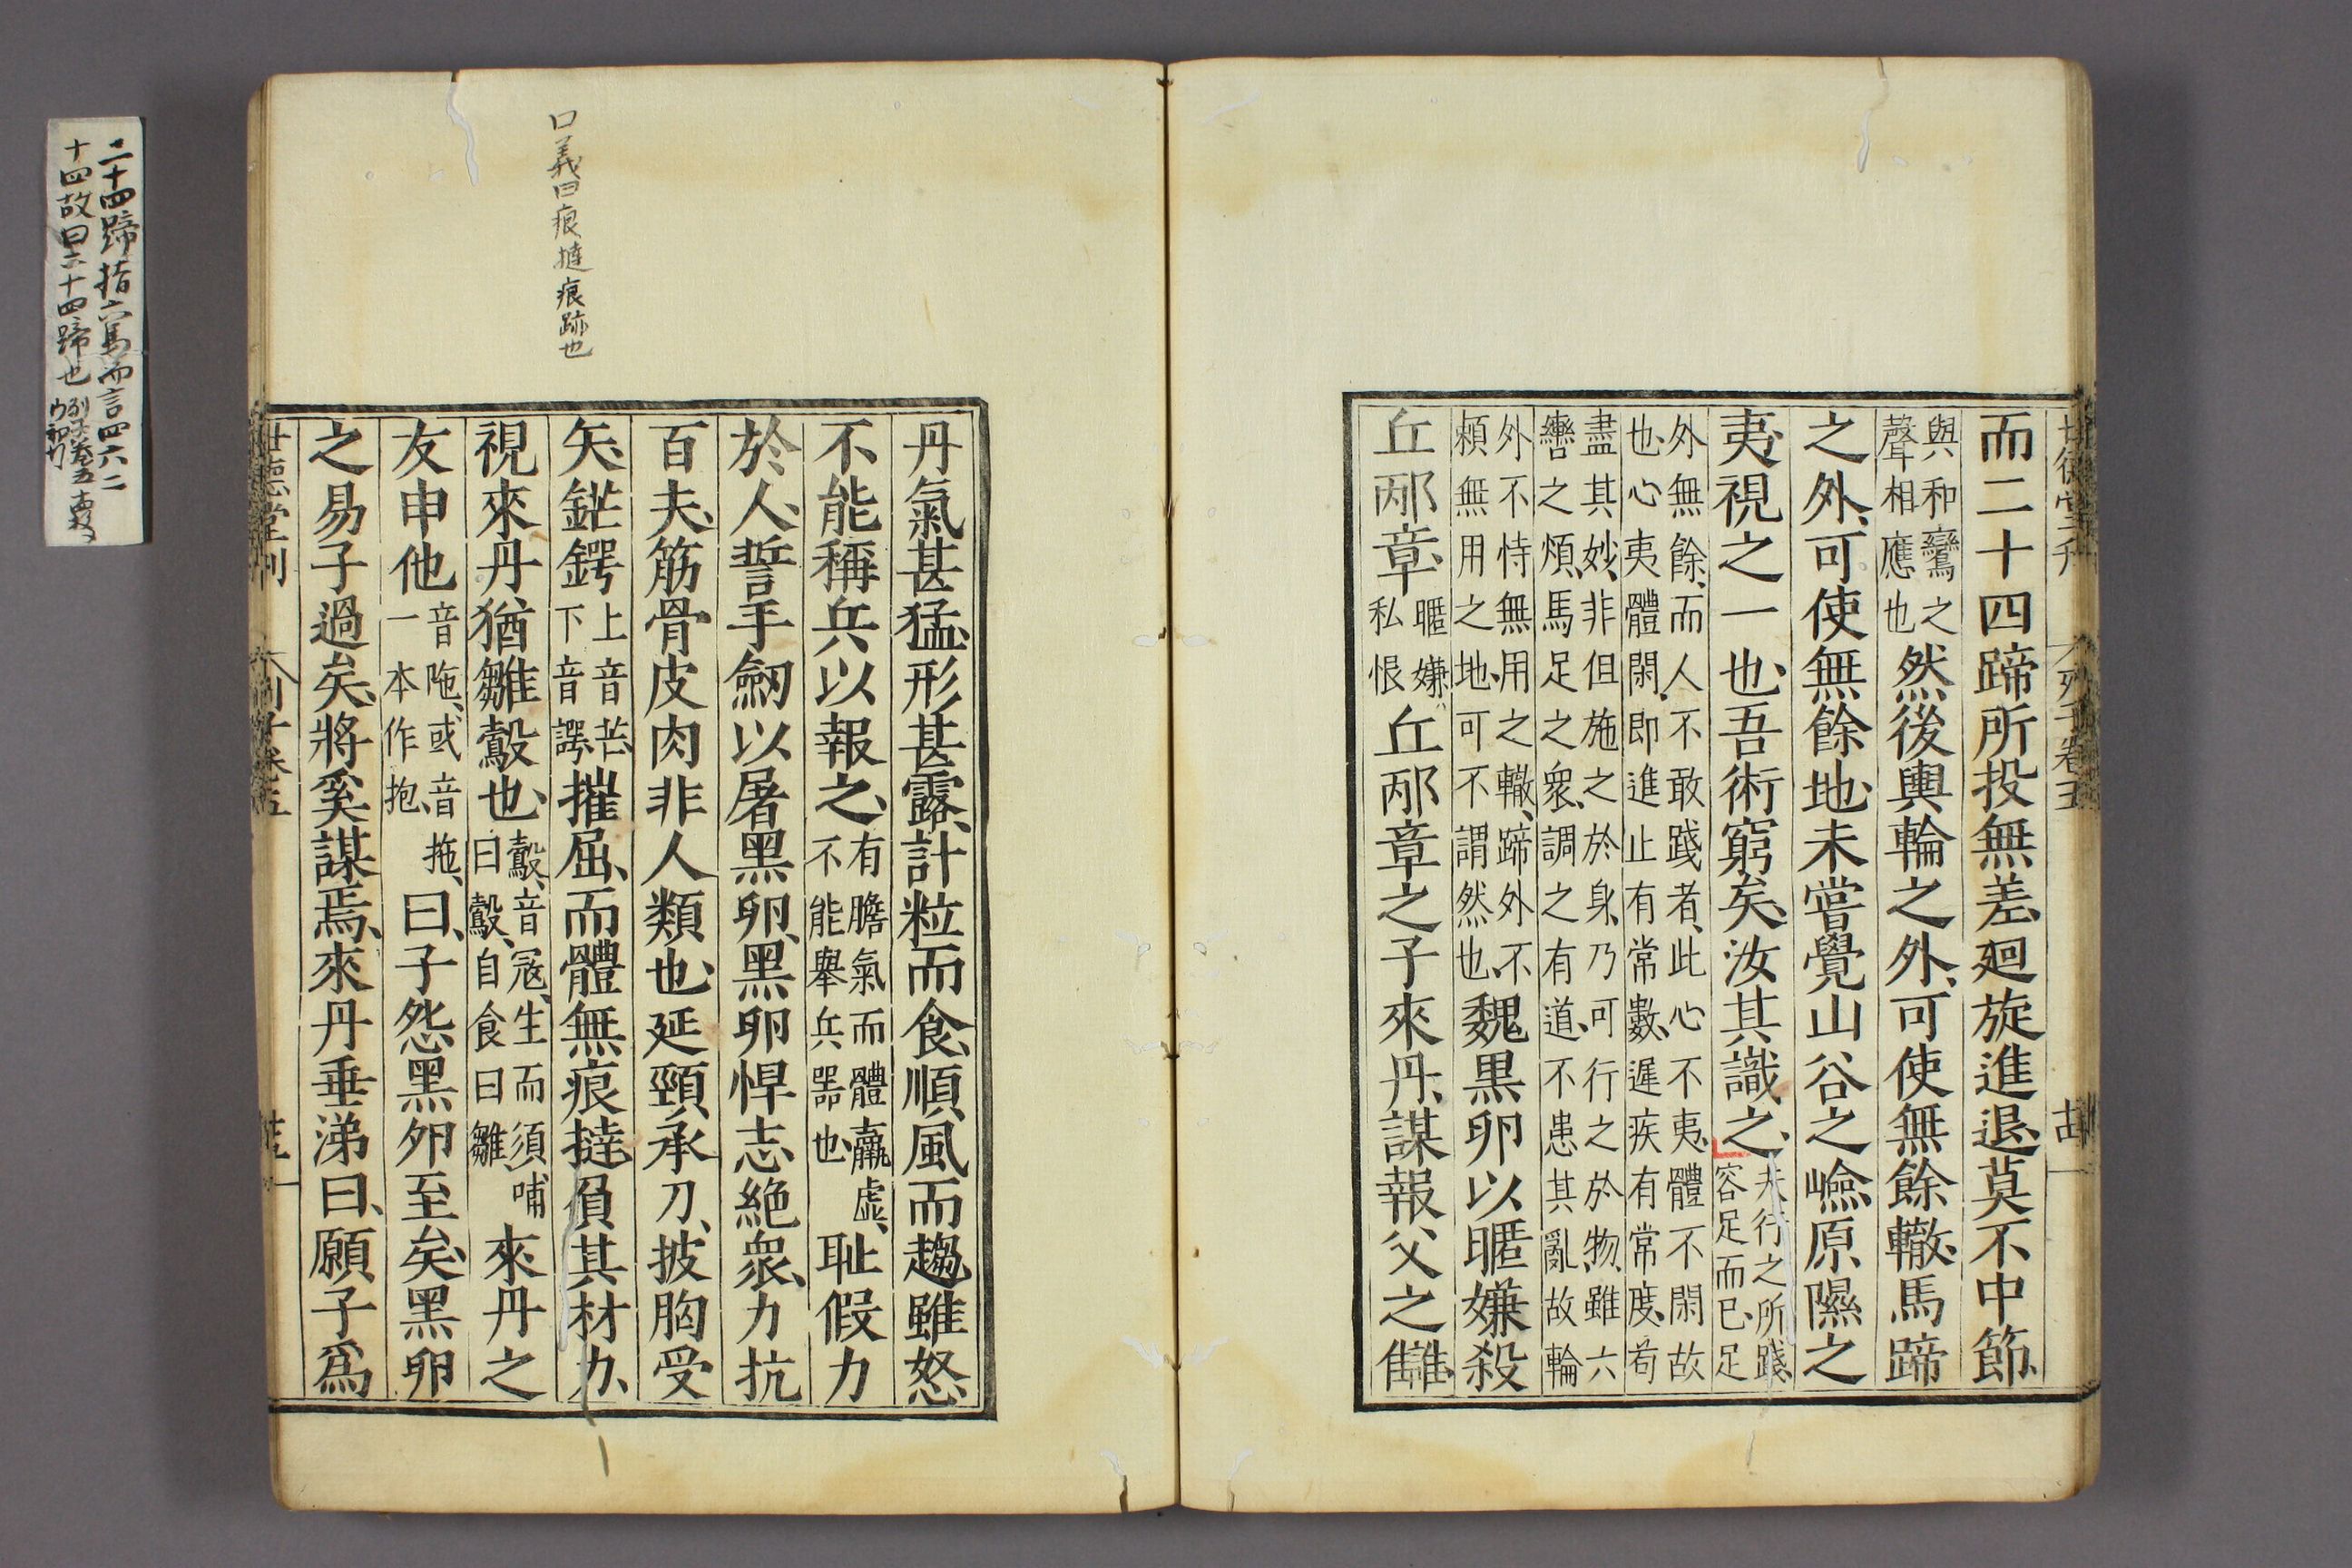 世德堂刊
列子卷五
十四
而二十四蹄所投無差、廻旋進退、莫不中節、
與和鸞之
聲相應也
然後輿輪之外、可使無餘轍、馬蹄
之外、可使無餘地、未嘗覺山谷之嶮、原隰之
夷、視之一也、吾術窮矣、汝其識之、
夫行之所踐、
容足而已、足
外無餘、而人不敢踐者、此心不夷、體不閑故
也、心夷體閑、即進止有常數、遲疾有常度、苟
盡其妙、非但施之於身、乃可行之於物、雖六
轡之煩、馬足之衆、調之有道、不患其亂、故輪
外不恃無用之轍、蹄外不
頼無用之地、可不謂然也、
魏黒卵以暱嫌殺
丘邴章、
暱嫌、
私恨
丘邴章之子來丹、謀報、父之讎、
丹氣甚猛、形甚露、計粒而食、順、風而趨、雖怒、
不能稱兵以報之、
有膽氣而體羸虛、
不能舉兵器也、
耻假力
於人、誓手劒以屠黑卵、黑卵悍志絕衆、力抗
百夫、筋骨皮肉非人類也、延頸、承刀、披胸受
矢、鋩鍔
上音芒、
下音諤、
摧屈、而體無痕撻、負其材力、
視來丹、猶雛鷇也、
鷇、音寇、生而須哺
曰鷇、自食曰雛
來丹之
友申他
音陁、或音拖、
一本作抱、
曰、子怨黑卵至矣、黑卵
之易子過矣、將奚謀焉、來丹垂涕曰、願子爲
世德堂刊
列子卷五
口義曰痕撻痕跡也
二十四蹄指六馬而言四六二
十四故曰二十四蹄也